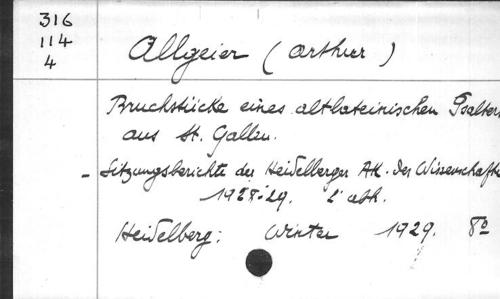 316
114
4
Allgeier (Arthur)
Bruchstücke eines altlateinischen Psalters
aus St. Gallen.
- Sitzungsberichte der Heidelberger Ak. der Wissenschafte
1928-29. 2' abh.
Heidelberg: Winter 1929. 8º